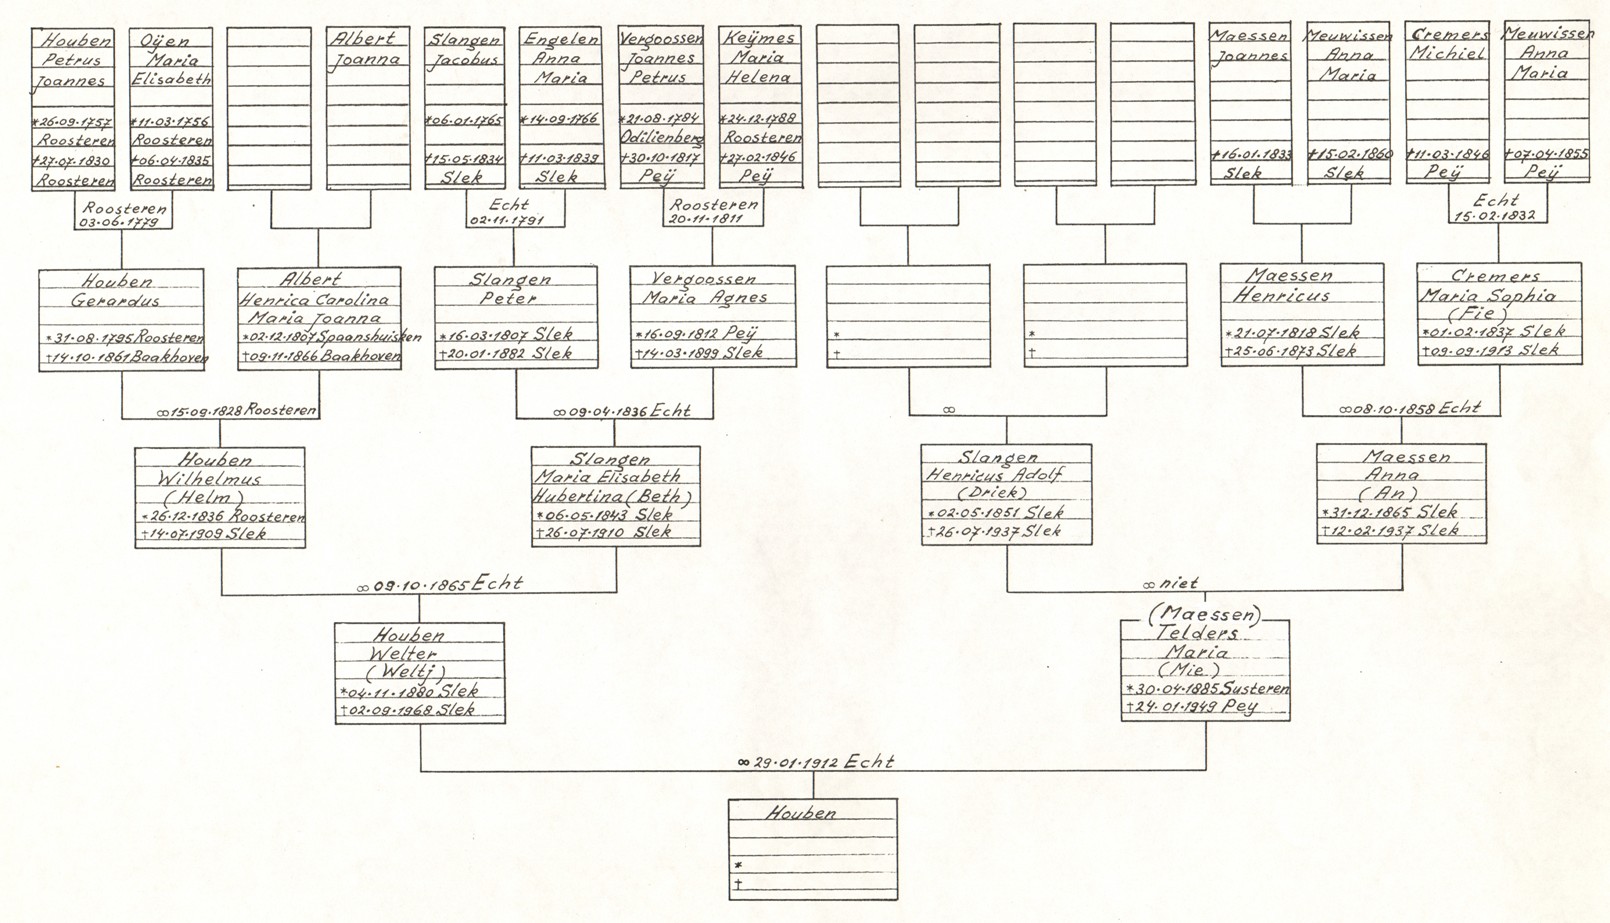 Houben
Petrus
Joannes
*26·09·1757
Roosteren
†27·07·1830
Roosteren
Oÿen
Maria
Elisabeth
*11·03·1756
Roosteren
†06·04·1835
Roosteren
Albert
Joanna
Slangen
Jacobus
*06·01·1765
†15·05·1834
Slek
Engelen
Anna
Maria
*14·09·1766
†11·03·1839
Slek
Vergoossen
Joannes
Petrus
*21·08·1784
Odilienberg
†30·10·1817
Peÿ
Keÿmes
Maria
Helena
*24·12·1788
Roosteren
†27·02·1846
Peÿ
Maessen
Joannes
†16·01·1833
Slek
Meuwissen
Anna
Maria
†15·02·1860
Slek
Cremers
Michiel
†11·03·1846
Peÿ
Meuwissen
Anna
Maria
†07·04·1855
Peÿ
Roosteren
03·06·1779
Echt
02·11·1791
Roosteren
20·11·1811
Echt
15·02·1832
Houben
Gerardus
*31·08·1795 Roosteren
†14·10·1861 Baakhoven
Albert
Henrica Carolina
Maria Joanna
*02·12·1807 Spaanshuisken
†09·11·1866 Baakhoven
Slangen
Peter
*16·03·1807 Slek
†20·01·1882 Slek
Vergoossen
Maria Agnes
*16·09·1812 Peÿ
†14·03·1899 Slek
*
†
*
†
Maessen
Henricus
*21·07·1818 Slek
†25·06·1873 Slek
Cremers
Maria Sophia
(Fie)
*01·02·1837 Slek
†09·09·1913 Slek
∞15·09·1828 Roosteren
∞09·04·1836 Echt
∞
∞08·10·1858 Echt
Houben
Wilhelmus
(Helm)
*26·12·1836 Roosteren
†14·07·1909 Slek
Slangen
Maria Elisabeth
Hubertina (Beth)
*06·05·1843 Slek
†26·07·1910 Slek
Slangen
Henricus Adolf
(Driek)
*02·05·1851 Slek
†26·07·1937 Slek
Maessen
Anna
(An)
*31·12·1865 Slek
†12·02·1937 Slek
∞ 09·10·1865 Echt
∞ niet
Houben
Welter
(Weltj)
*04·11·1880 Slek
†02·09·1968 Slek
(Maessen)
Telders
Maria
(Mie)
*30·04·1885 Susteren
†24·01·1949 Pey
∞ 29·01·1912 Echt
Houben
*
†